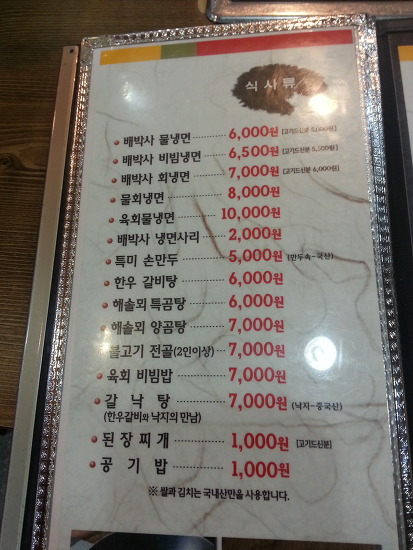 식사류
배박사 물냉면 6,000원 [고기드신분 5,000원]
배박사 비빔냉면 6,500원 [고기드신분 5,500원]
배박사 회냉면 7,000원 [고기드신분 6,000원]
물회냉면 8,000원
육회물냉면 10,000원
배박사 냉면사리 2,000원
특미 손만두 5,000원 (만두속-국산)
한우 갈비탕 6,000원
해솔뫼 특곰탕 6,000원
해솔뫼 양곰탕 7,000원
불고기 전골(2인이상) 7,000원
육회 비빔밥 7,000원
갈낙탕 7,000원 (낙지-중국산)
(한우갈비와 낙지의 만남)
된장찌개 1,000원 [고기드신분]
공기밥 1,000원
※ 쌀과 김치는 국내산만을 사용합니다.